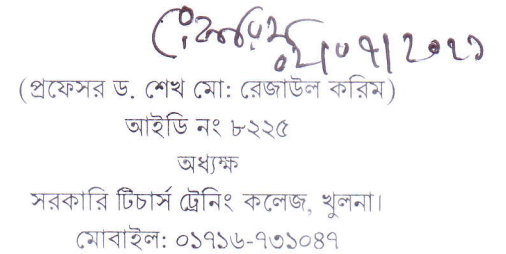 ০১/০৭/২০২১
(প্রফেসর ড. শেখ মো: রেজাউল করিম)
আইডি নং ৮২২৫
অধ্যক্ষ
সরকারি টিচার্স ট্রেনিং কলেজ, খুলনা।
মোবাইল: ০১৭১৬-৭৩১০৪৭